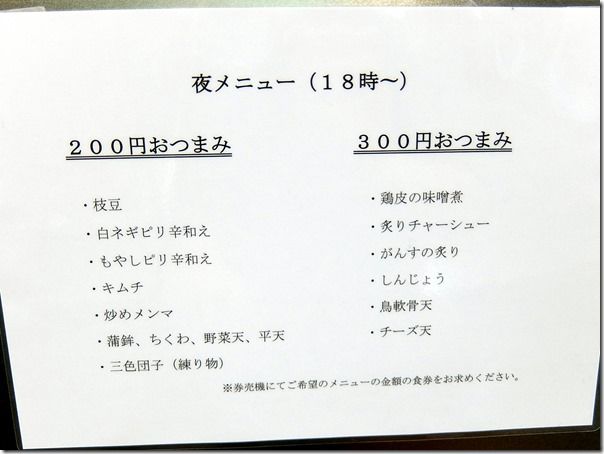 夜メニュー（１８時～）
２００円おつまみ
・枝豆
・白ネギピリ辛和え
・もやしピリ辛和え
・キムチ
・炒めメンマ
・蒲鉾、ちくわ、野菜天、平天
・三色団子（練り物）
３００円おつまみ
・鶏皮の味噌煮
・炙りチャーシュー
・がんすの炙り
・しんじょう
・鳥軟骨天
・チーズ天
※券売機にてご希望のメニューの金額の食券をお求めください。